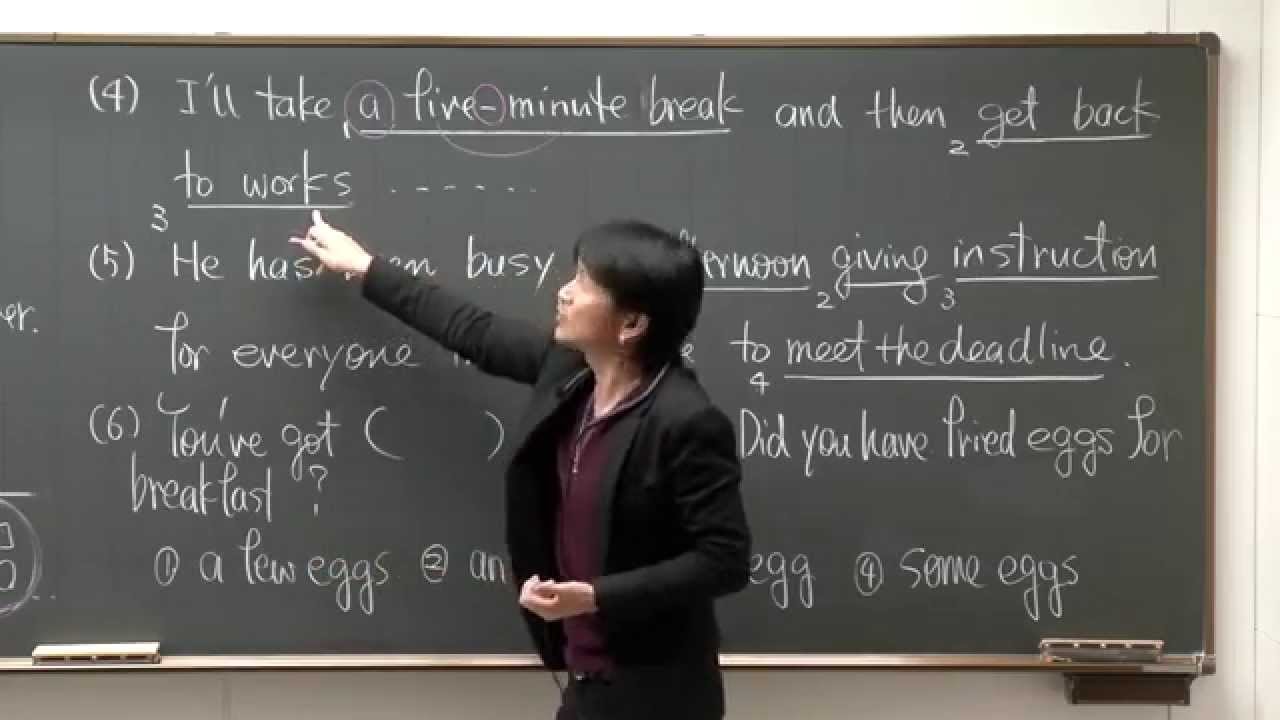 (4) I'll take a five-minute break and then get back
1 2
to works ......
3
(5) He has busy giving instruction
2 3
er.
for everyone to meet the deadline.
4
(6) You've got ( ) Did you have fried eggs for
breakfast?
① a few eggs ② an egg ④ some eggs